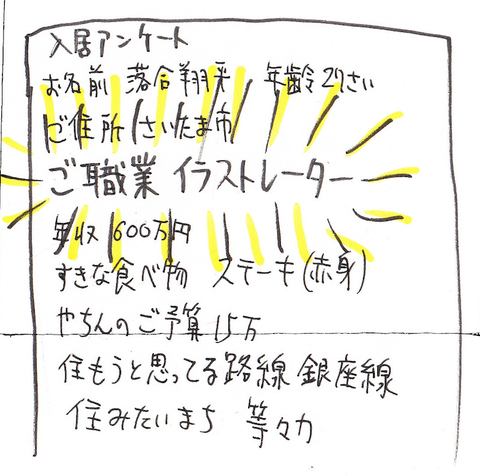 入居アンケート
お名前 落合翔平 年齢29さい
ご住所 さいたま市
ご職業 イラストレーター
年収 600万円
すきな食べ物 ステーキ(赤身)
やちんのご予算 15万
住もうと思ってる路線 銀座線
住みたいまち 等々力